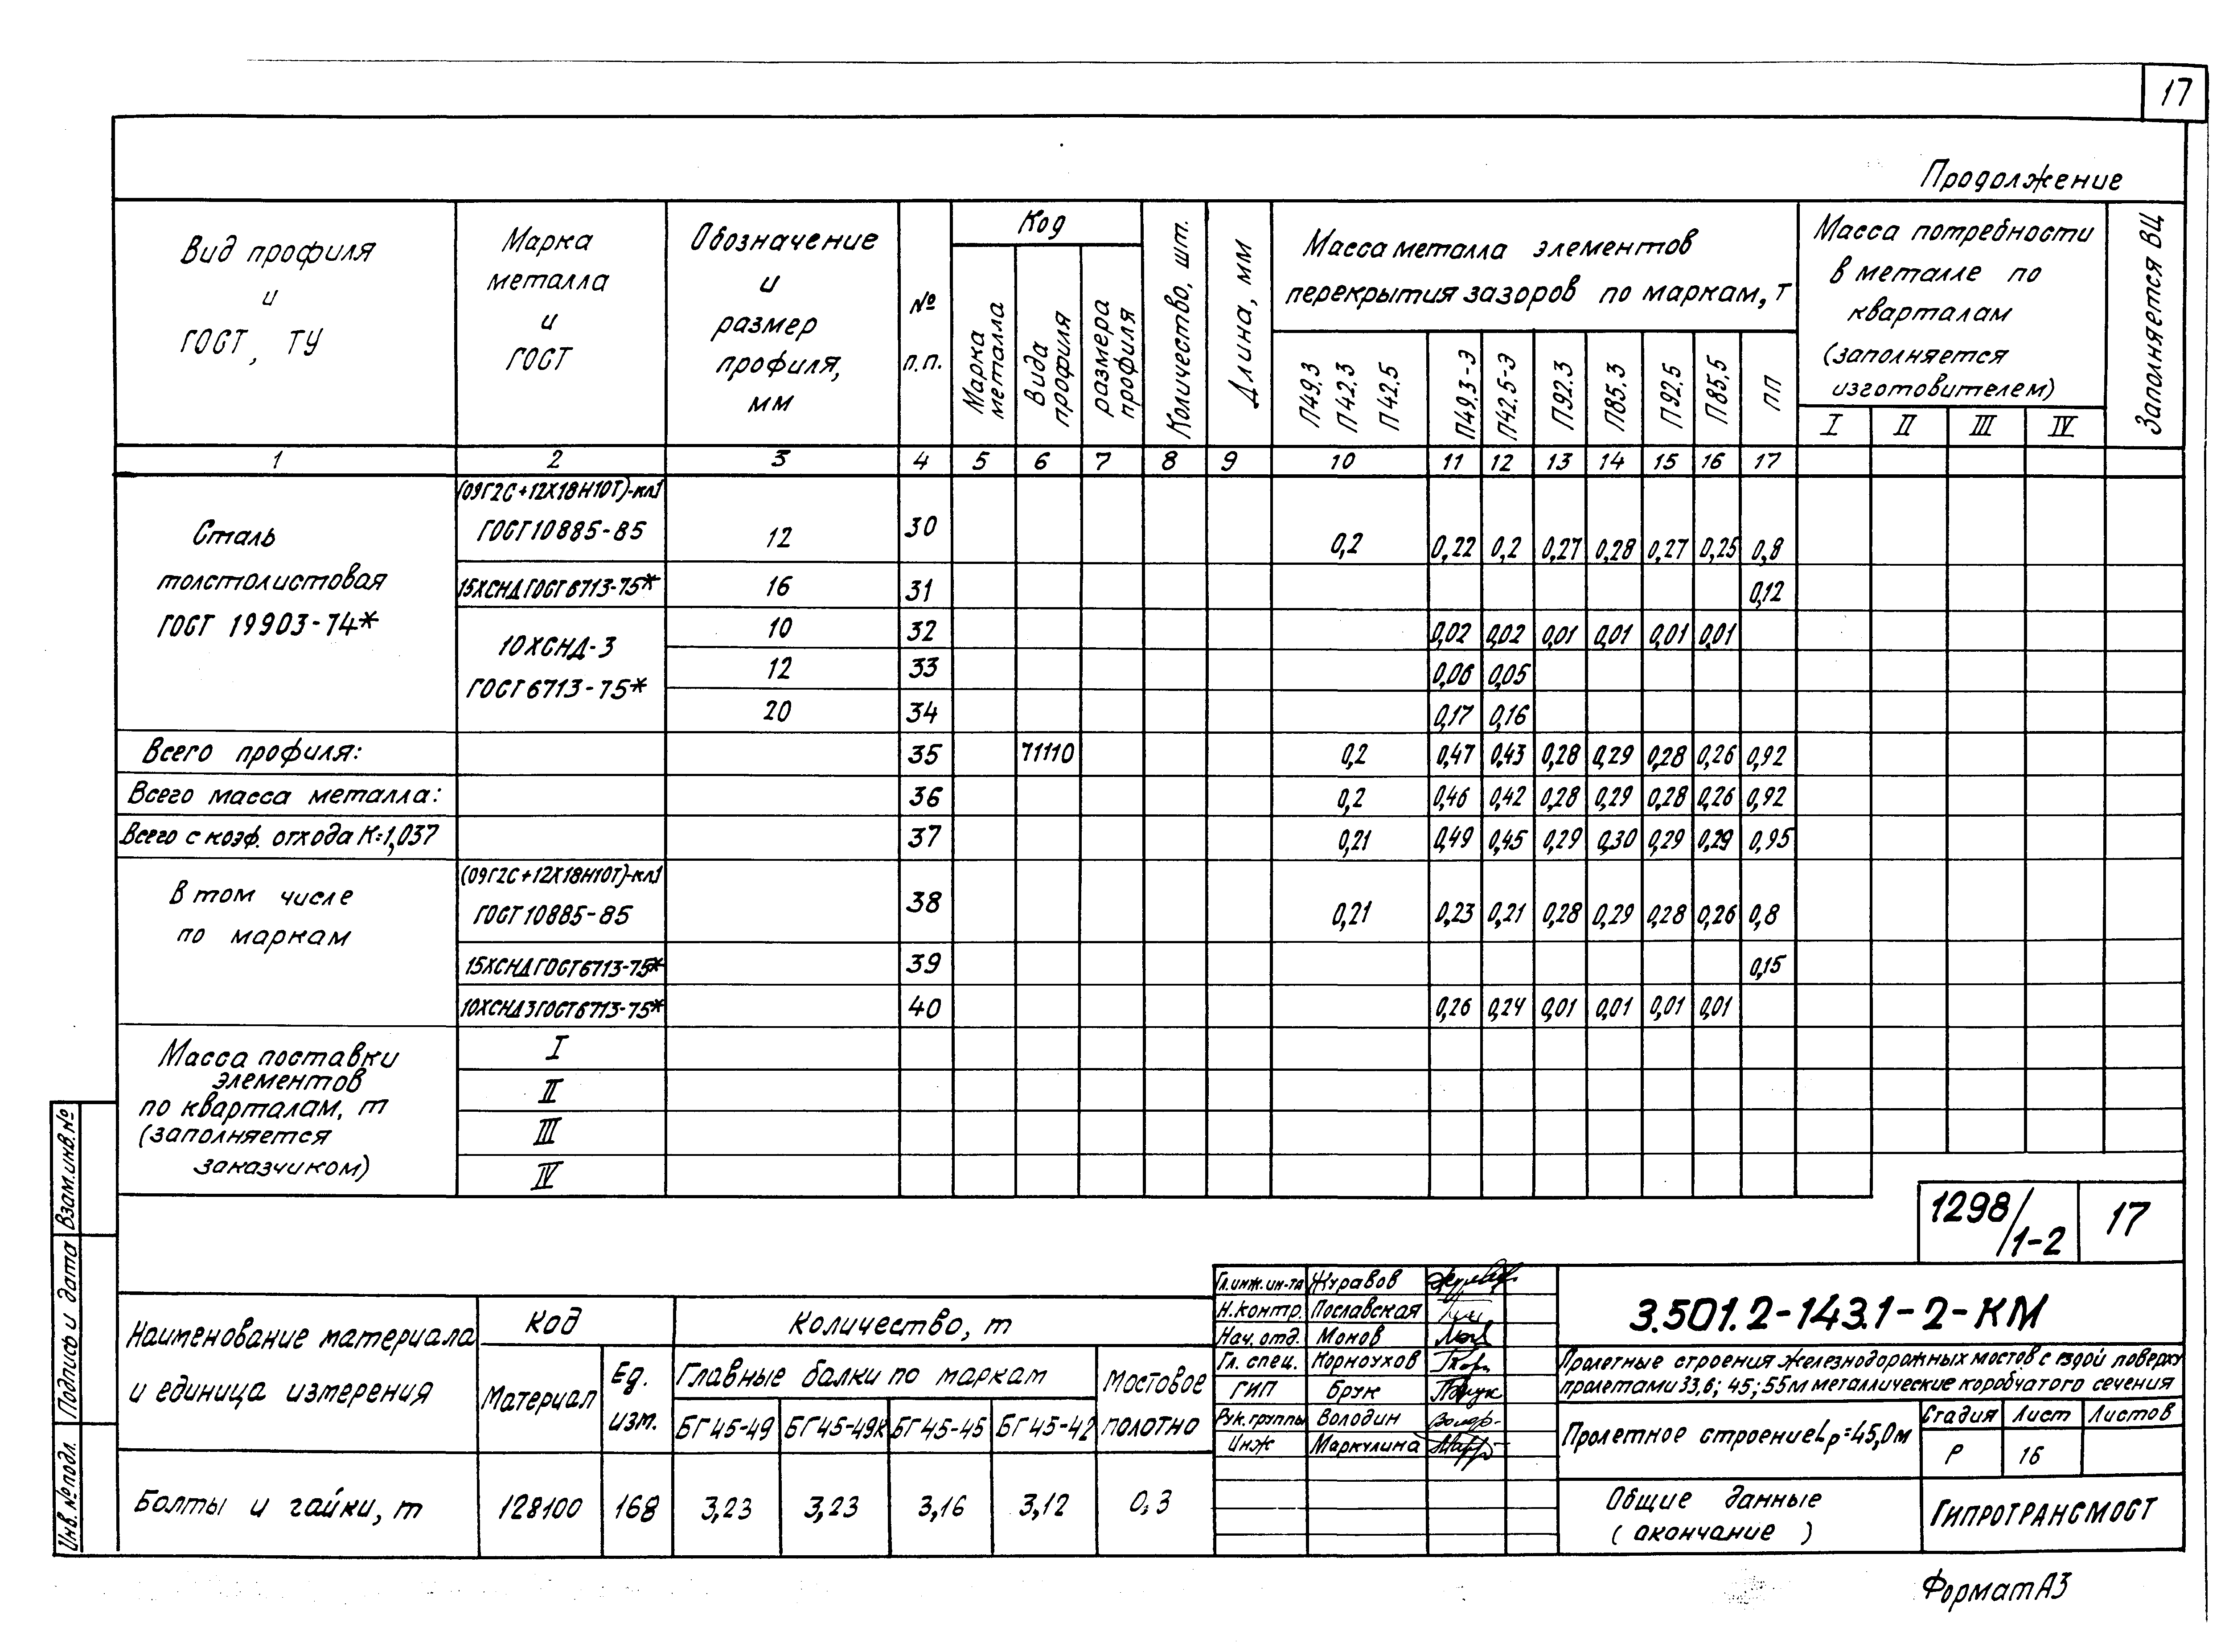 17
Продолжение
Вид профиля и ГОСТ, ТУ
Марка металла и ГОСТ
Обозначение и размер профиля, мм
№ п.п.
Код
Марка металла
Вида профиля
размера профиля
Количество, шт.
Длина, мм
Масса металла элементов перекрытия зазоров по маркам, т
П49.3 П42.3 П42.5
П49.3-Э
П42.5-Э
П92.3
П85.3
П92.5
П85.5
ПП
Масса потребности в металле по кварталам (заполняется изготовителем)
I II III IV
Заполняется ВЦ
1 2 3 4 5 6 7 8 9 10 11 12 13 14 15 16 17
Сталь толстолистовая ГОСТ 19903-74*
(09Г2С+12Х18Н10Т)-кл1 ГОСТ 10885-85 12 30 0,2 0,22 0,2 0,27 0,28 0,27 0,25 0,8
15ХСНД ГОСТ 6713-75* 16 31 0,12
10ХСНД-3 ГОСТ 6713-75*
10 32 0,02 0,02 0,01 0,01 0,01 0,01
12 33 0,06 0,05
20 34 0,17 0,16
Всего профиля: 35 71110 0,2 0,47 0,43 0,28 0,29 0,28 0,26 0,92
Всего масса металла: 36 0,2 0,46 0,42 0,28 0,29 0,28 0,26 0,92
Всего с коэф. отхода К=1,037 37 0,21 0,49 0,45 0,29 0,30 0,29 0,29 0,95
В том числе по маркам
(09Г2С+12Х18Н10Т)-кл1 ГОСТ 10885-85 38 0,21 0,23 0,21 0,28 0,29 0,28 0,26 0,8
15ХСНД ГОСТ 6713-75* 39 0,15
10ХСНД3 ГОСТ 6713-75* 40 0,26 0,24 0,01 0,01 0,01 0,01
Масса поставки элементов по кварталам, т (заполняется заказчиком)
I
II
III
IV
1298/1-2 17
Наименование материала и единица измерения
Код
Материал
Ед. изм.
Количество, т
Главные балки по маркам
БГ45-49 БГ45-49К БГ45-45 БГ45-42
Мостовое полотно
Болты и гайки, т 128100 168 3,23 3,23 3,16 3,12 0,3
Гл.инж.ин-та Журавов
Н.контр. Пославская
Нач.отд. Монов
Гл. спец. Корноухов
ГИП Брук
Рук.группы Володин
Инж Маркулина
3.501.2-143.1-2-КМ
Пролетные строения железнодорожных мостов с ездой поверху
пролетами 33,6; 45; 55м металлические коробчатого сечения
Пролетное строение Lр=45,0м
Стадия Лист Листов
Р 16
Общие данные
(окончание)
ГИПРОТРАНСМОСТ
Инв.№ подл. Подпись и дата Взам.инв.№
Формат А3